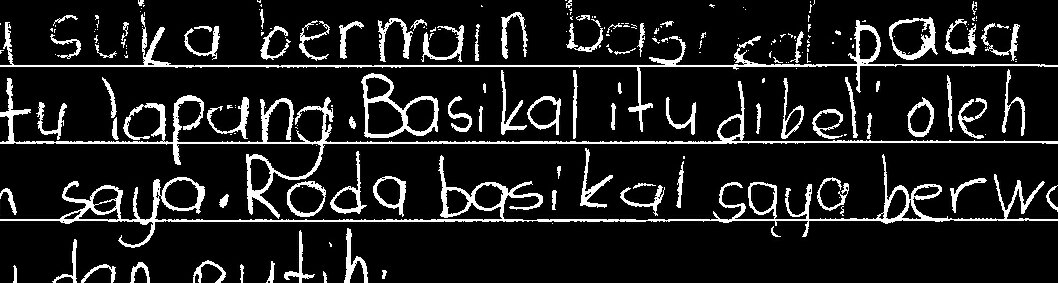 suka bermain basikal pada
tu lapang. Basikal itu dibeli oleh
saya. Roda basikal saya berwa
dan putih.